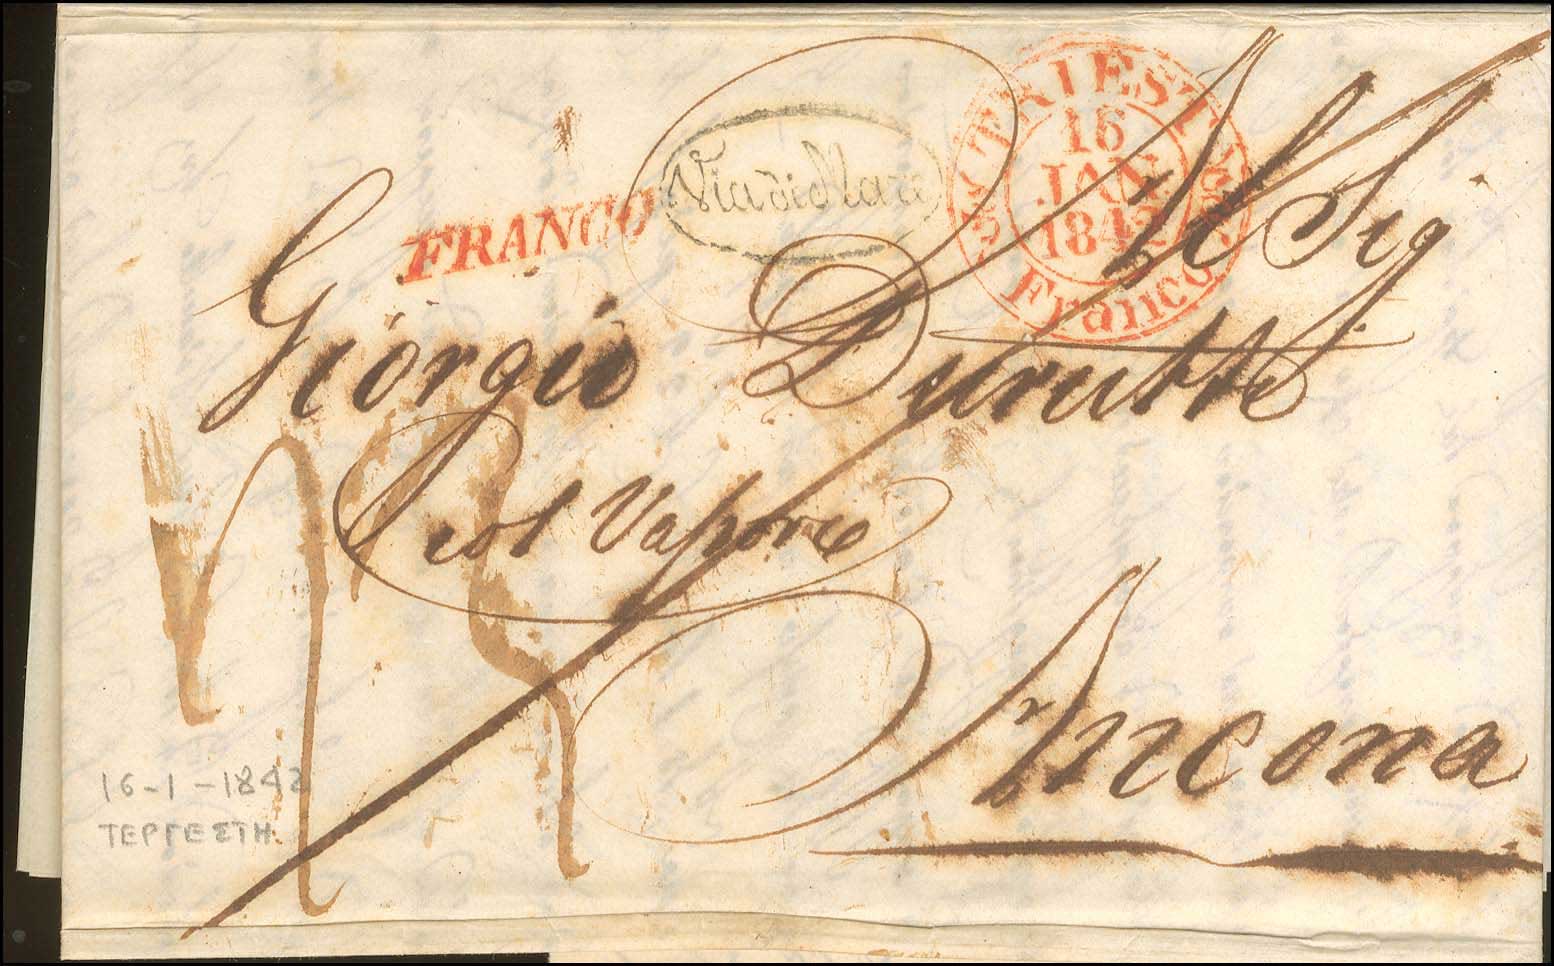 TRIEST
16
JAN:
1842
Franco.
Via di Mare
FRANCO
Al Sig
Giorgio Durutti
col Vapore
Ancona
16-1-1842
ΤΕΡΓΕΣΤΗ